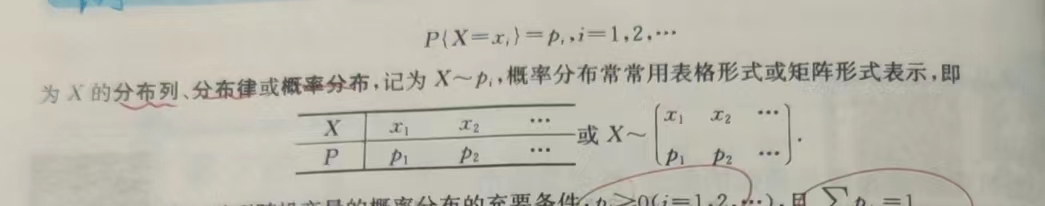 P{X=xᵢ}=pᵢ,i=1,2,…
为 X 的分布列、分布律或概率分布,记为 X~pᵢ,概率分布常常用表格形式或矩阵形式表示,即
X x₁ x₂ … 或 X~ ( x₁ x₂ …
P p₁ p₂ … p₁ p₂ … ).
随机变量的概率分布的充要条件 pᵢ≥0(i=1,2,…),且 ∑pᵢ=1